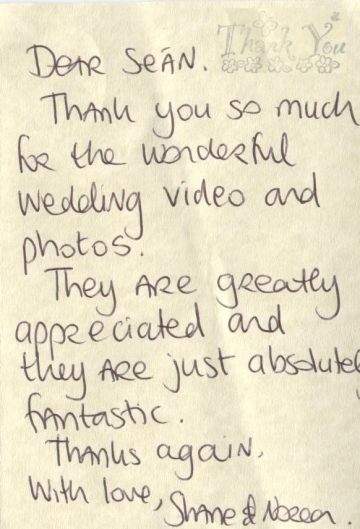 Thank You
Dear Seán.
Thank you so much
for the wonderful
wedding video and
photos.
They are greatly
appreciated and
they are just absolutely
fantastic.
Thanks again.
With love, Shane & Noreen.